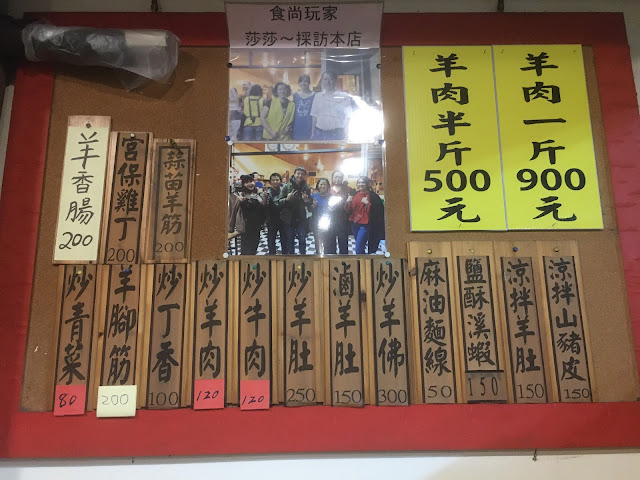 食尚玩家
莎莎～採訪本店
羊肉半斤
500元
羊肉一斤
900元
羊香腸
200
宮保雞丁
200
蒜苗羊筋
200
炒青菜
80
羊腳筋
200
炒丁香
100
炒羊肉
120
炒牛肉
120
炒羊肚
250
滷羊肚
150
炒羊佛
300
麻油麵線
50
鹽酥溪蝦
150
涼拌羊肚
150
涼拌山豬皮
150